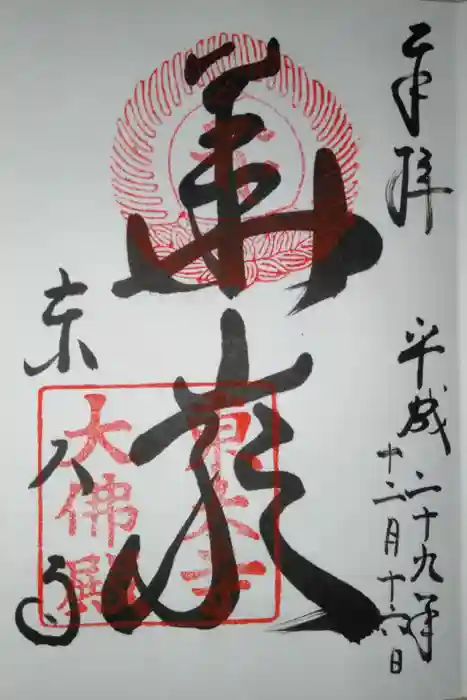 奉拝
平成二十九年
十二月十六日
華厳
東大寺
大佛殿
東大寺